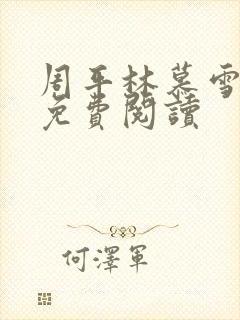 周平林慕雪
免費閱讀
何澤軍